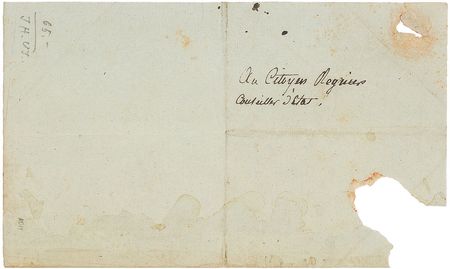 Au Citoyen Regnier
Conseiller d'Etat,
65.-